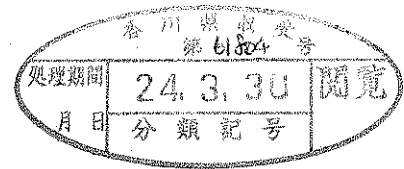 香川県収受
第61804号
処理期間
24.3.30
閲覧
月日
分類記号